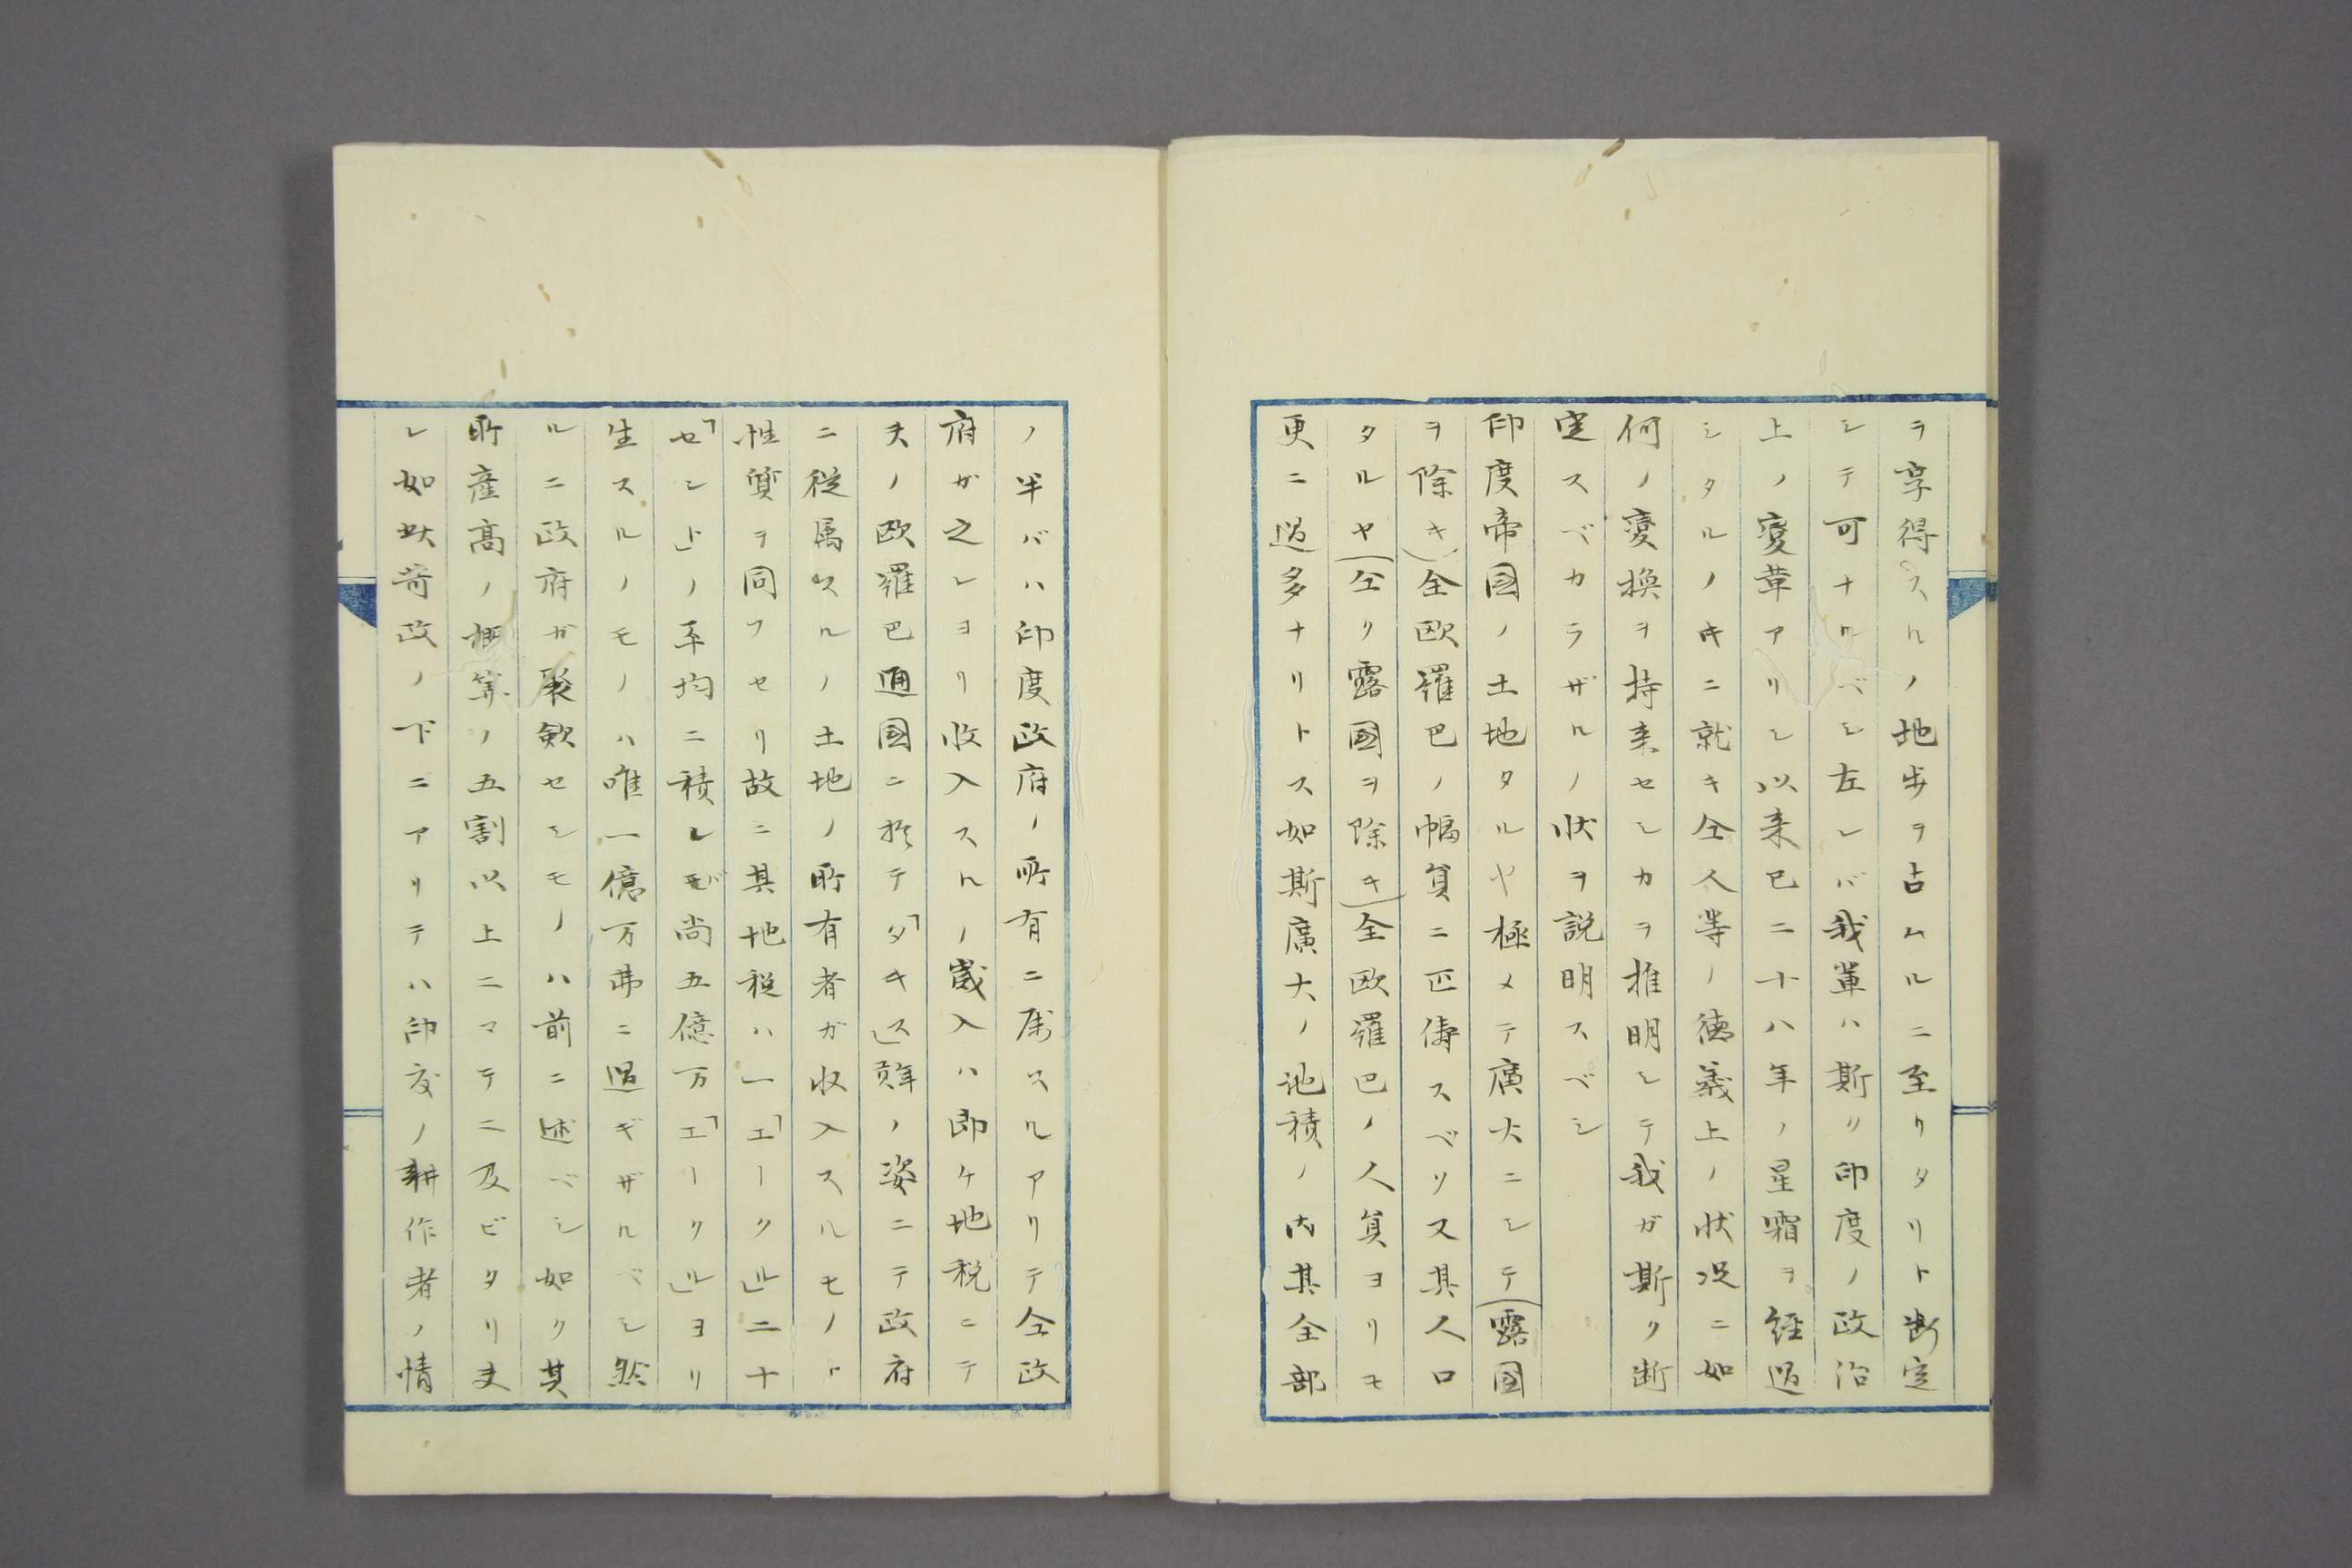 ヲ享得スルノ地歩ヲ占ムルニ至リタリト断定
シテ可ナルベシ左レバ我輩ハ斯ク印度ノ政治
上ノ変革アリシ以来已ニ十八年ノ星霜ヲ経過
シタルノキニ就キ仝人等ノ徳義上ノ状況ニ如
何ノ変換ヲ持来セシカヲ推明シテ我ガ斯ク断
定スベカラザルノ状ヲ説明スベシ
印度帝國ノ土地タルヤ極メテ廣大ニシテ(露國
ヲ除キ)全欧羅巴ノ幅員ニ匹儔スベク又其人口
タルヤ(仝ク露國ヲ除キ)全欧羅巴ノ人員ヨリモ
更ニ過多ナリトス如斯廣大ノ地積ノ内其全部
ノ半バハ印度政府ノ所有ニ属スルアリテ仝政
府ガ之レヨリ收入スルノ歳入ハ即ケ地税ニテ
夫ノ欧羅巴通國ニ於テ「タキス」ノ姿ニテ政府
ニ従属スルノ土地ノ所有者ガ收入スルモノト
性質ヲ同フセリ故ニ其地税ハ一「エークル」ニ十
「セント」ノ平均ニ積ルモ尚五億万「エークル」ヨリ
生スルノモノハ唯一億万弗ニ過ギザルベシ然
ルニ政府ガ聚歛セシモノハ前ニ述ベシ如ク其
所産高ノ概算ノ五割以上ニマテニ及ビタリ夫
レ如此苛政ノ下ニアリテハ印度ノ耕作者ノ情